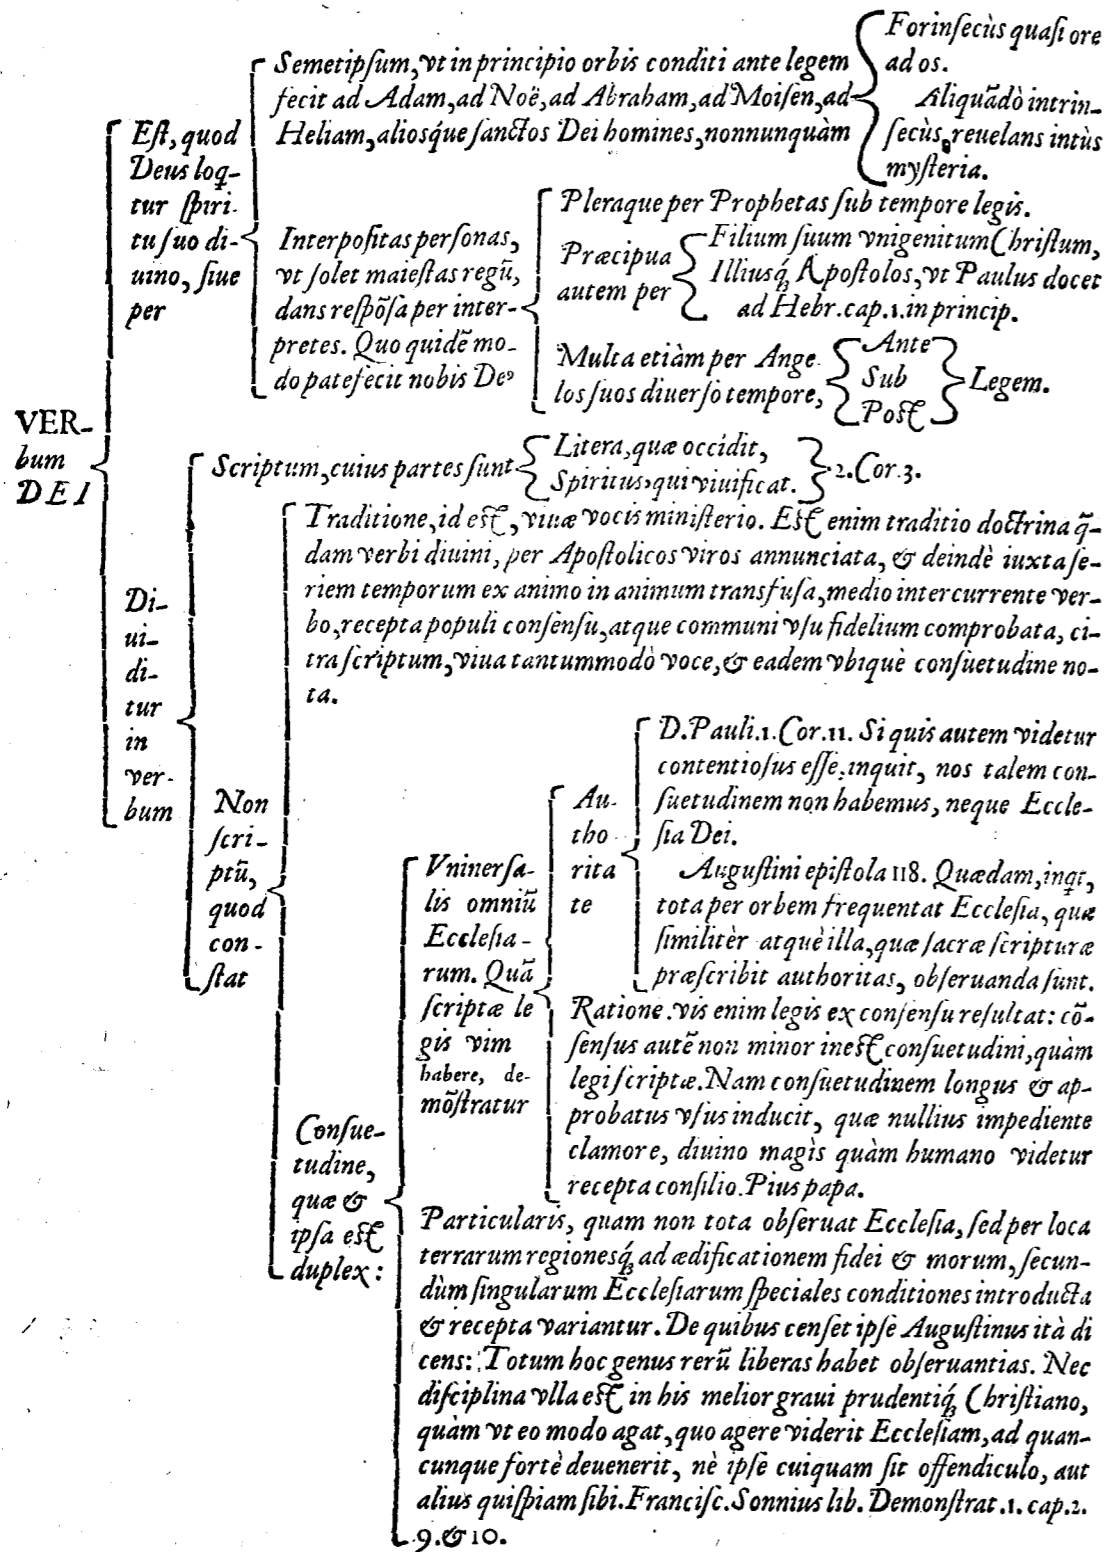 VER-
bum
DEI
Est, quod
Deus loq-
tur spiri-
tu suo di-
uino, siue
per
Semetipsum, vt in principio orbis conditi ante legem
fecit ad Adam, ad Noë, ad Abraham, ad Moisen, ad
Heliam, aliosq́ue sanctos Dei homines, nonnunquàm
Forinsecùs quasi ore
ad os.
Aliquãdò intrin-
secùs, reuelans intùs
mysteria.
Interpositas personas,
vt solet maiestas regũ,
dans respõsa per inter-
pretes. Quo quidẽ mo-
do patefecit nobis Deꝰ
Pleraque per Prophetas sub tempore legis.
Præcipua
autem per
Filium suum vnigenitum Christum,
Illiusq́; Apostolos, vt Paulus docet
ad Hebr. cap. 1. in princip.
Multa etiàm per Ange
los suos diuerso tempore,
Ante
Sub
Post
Legem.
Di-
ui-
di-
tur
in
ver-
bum
Scriptum, cuius partes sunt
Litera, quæ occidit,
Spiritus, qui viuificat.
2. Cor. 3.
Non
scri-
ptũ,
quod
con-
stat
Traditione, id est, viuæ vocis ministerio. Est enim traditio doctrina q̃-
dam verbi diuini, per Apostolicos viros annunciata, & deindè iuxta se-
riem temporum ex animo in animum transfusa, medio intercurrente ver-
bo, recepta populi consensu, atque communi vsu fidelium comprobata, ci-
tra scriptum, viua tantummodò voce, & eadem vbiquè consuetudine no-
ta.
Consue-
tudine,
quæ &
ipsa est
duplex:
Vniuersa-
lis omniũ
Ecclesia-
rum. Quã
scriptæ le
gis vim
habere, de-
mõstratur
Au-
tho
rita
te
D. Pauli. 1. Cor. 11. Si quis autem videtur
contentiosus esse, inquit, nos talem con-
suetudinem non habemus, neque Eccle-
sia Dei.
Augustini epistola 118. Quædam, inqt,
tota per orbem frequentat Ecclesia, quæ
similitèr atquè illa, quæ sacræ scripturæ
præscribit authoritas, obseruanda sunt.
Ratione. vis enim legis ex consensu resultat: cõ-
sensus autẽ non minor inest consuetudini, quàm
legi scriptæ. Nam consuetudinem longus & ap-
probatus vsus inducit, quæ nullius impediente
clamore, diuino magìs quàm humano videtur
recepta consilio. Pius papa.
Particularis, quam non tota obseruat Ecclesia, sed per loca
terrarum regionesq́; ad ædificationem fidei & morum, secun-
dùm singularum Ecclesiarum speciales conditiones introducta
& recepta variantur. De quibus censet ipse Augustinus ità di
cens: Totum hoc genus rerũ liberas habet obseruantias. Nec
disciplina vlla est in his melior graui prudentiq́; Christiano,
quàm vt eo modo agat, quo agere viderit Ecclesiam, ad quan-
cunque fortè deuenerit, nè ipse cuiquam sit offendiculo, aut
alius quispiam sibi. Francisc. Sonnius lib. Demonstrat. 1. cap. 2.
9. & 10.